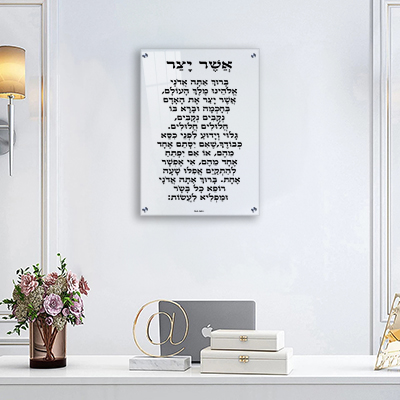 אֲשֶׁר יָצַר
בָּרוּךְ אַתָּה אֲדֹנָי
אֱלֹהֵינוּ מֶלֶךְ הָעוֹלָם,
אֲשֶׁר יָצַר אֶת הָאָדָם
בְּחָכְמָה וּבָרָא בוֹ
נְקָבִים נְקָבִים,
חֲלוּלִים חֲלוּלִים.
גָּלוּי וְיָדוּעַ לִפְנֵי כִסֵּא
כְבוֹדֶךָ,שֶׁאִם יִסָּתֵם אֶחָד
מֵהֶם, אוֹ אִם יִפָּתֵחַ
אֶחָד מֵהֶם, אִי אֶפְשַׁר
לְהִתְקַיֵּם אֲפִלּוּ שָׁעָה
אֶחָת. בָּרוּךְ אַתָּה אֲדֹנָי
רוֹפֵא כָל בָּשָׂר
וּמַפְלִיא לַעֲשׂוֹת:
@